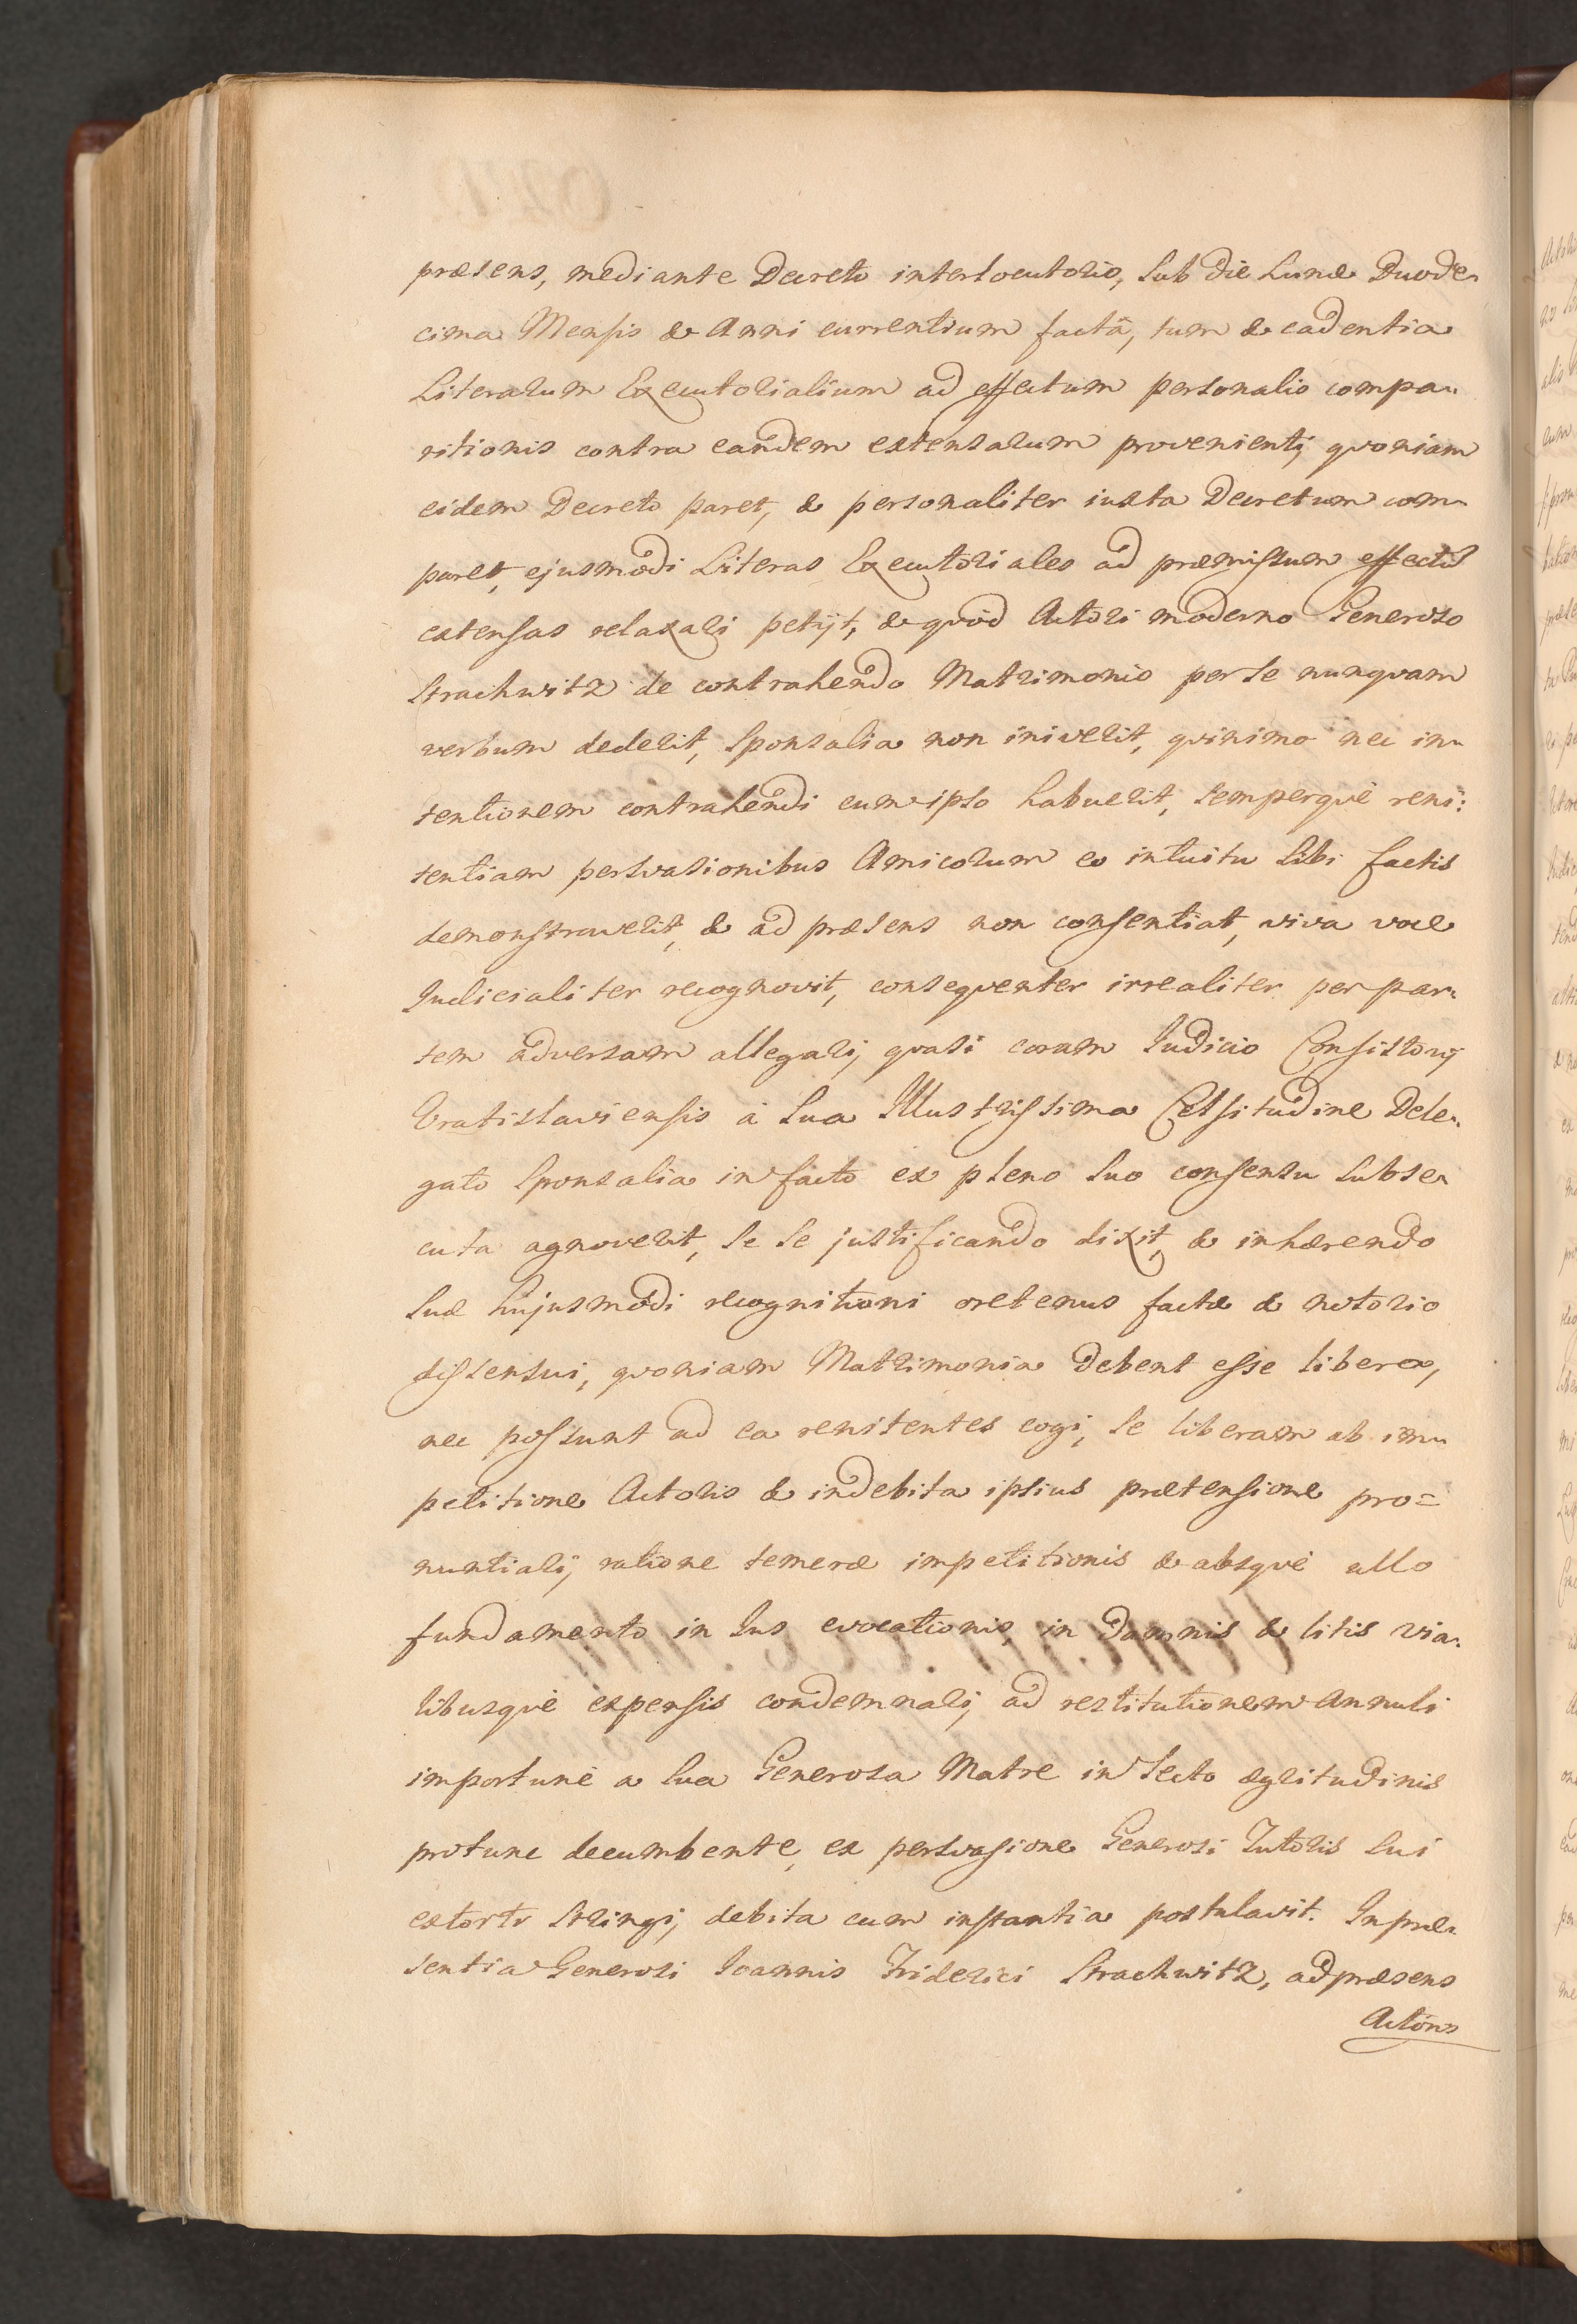 præsens, mediante Decreto interlocutorio, sub die Lunæ Duode-
cima Mensis & Anni currentium factâ, tum & cadentia
Literarum Executorialium ad effectum personalis compa-
ritionis contra eandem extensarum provenienti, qvoniam
eidem Decreto paret, & personaliter iuxta Decretum com-
paret, ejusmodi Literas Executoriales ad præmissum effectû
extensas relaxari petijt, & qvòd Actori moderno Generoso
Strachwitz de contrahendo Matrimonio per se nunqvam
verbum dederit, Sponsalia non iniverit, qvinimo nec in-
tentionem contrahendi cum ipso habuerit, semperqvè reni:
tentiam persvasionibus Amicorum eo intuitu sibi factis
demonstraverit, & ad præsens non consentiat, viva voce
Iudicialiter recognovit, conseqventer irrealiter per par-
tem adversam allegari, qvasi coram Iudicio Consistorij
Vratislaviensis à Sua Illustrissima Celsitudine Dele-
gato Sponsalia in facto ex pleno suo consensu subse-
cuta agnoverit, se se justificando dixit, & inhærendo
suæ hujusmodi recognitioni oretenus factæ & notorio
dissensui, qvoniam Matrimonia debent esse libera,
nec possunt ad ea renitentes cogi, se liberam ab im-
petitione Actoris & indebita ipsius prætensione pro=
nuntiari, ratione temeræ impetitionis & absqvè ullo
fundamento in Ius evocationis, in damnis & litis via-
libusqvè expensis condemnari, ad restitutionem Annuli
importunè a sua Generosa Matre in lecto ægritudinis
protunc decumbente, ex persvasione Generosi Tutoris sui
extorti stringi, debita cum instantia postulavit. In præ-
sentia Generosi Ioannis Friderici Strachwitz, ad præsens
Actoris